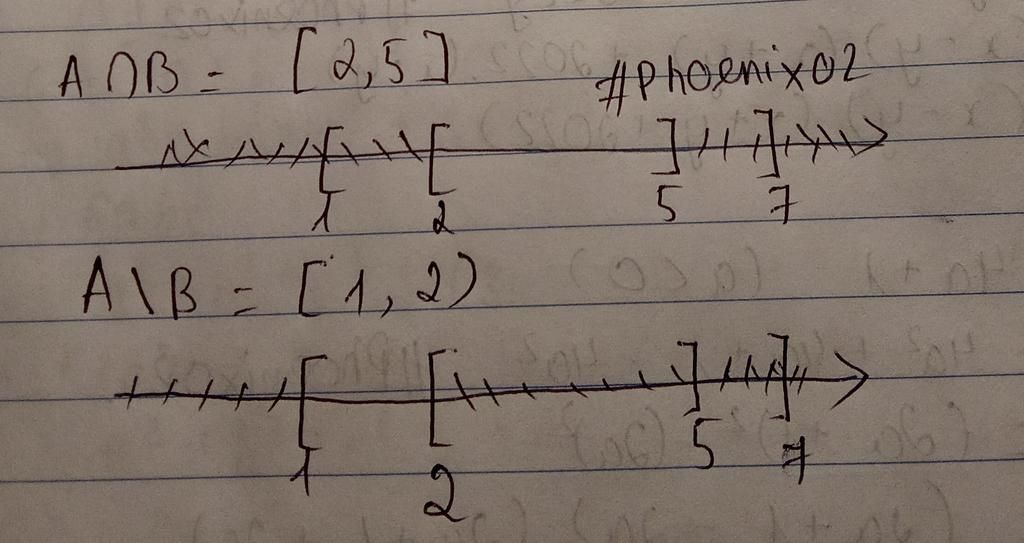 A∩B = [2,5]
#phoenix02
1 2 5 7
A\B = [1,2)
1 2 5 7